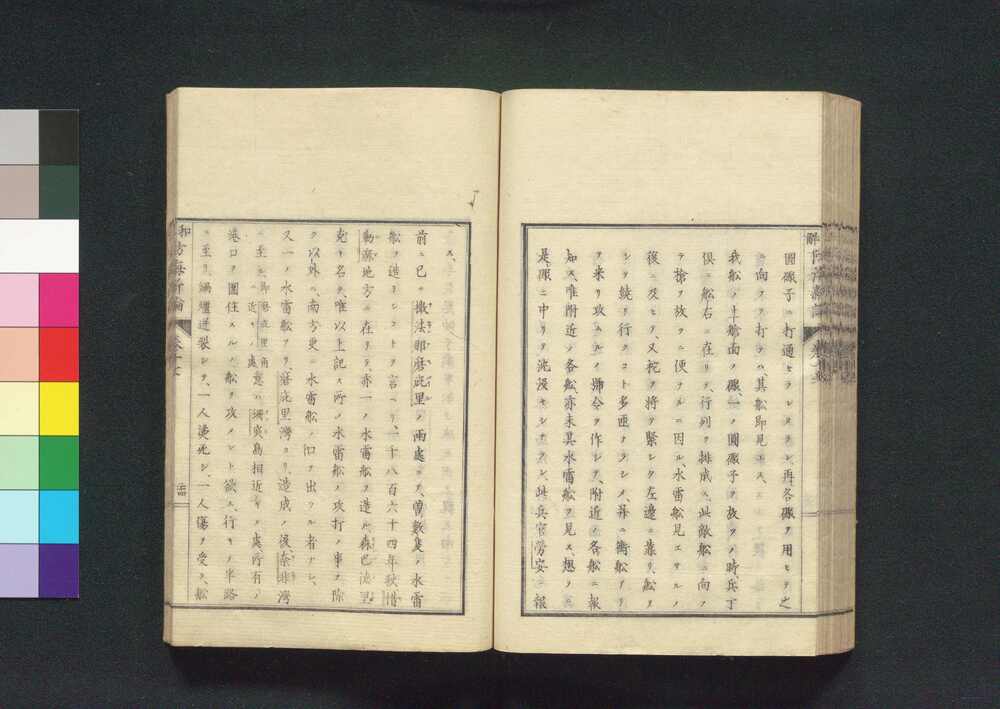 圓礟子ニ打通セラレズラン、再各礟ヲ用ヒテ之
ニ向ヲテ打テハ、其船即見エス、
我船ノ上艙面ノ礟一ノ圓礟子ヲ放ツノ時、兵丁
俱ニ船右ニ在リテ、行列ヲ排成ス、此敵船ニ向テ
ヲ槍ヲ放ツニ便ナルニ因ル、水雷船見エサルノ
後ニ及ヒテ、又舵ヲ將テ緊シク左邊ニ靠リ、船ヲ
シテ繞リ行クコト多匝ナラシメ、并ニ衝船ナリ
ヲ来リ攻ムルノ號令ヲ作シテ、附近ノ各船ニ報
知ス、唯附近ノ各船、亦未其水雷船ヲ見ス、想フニ
是、礟ニ中リテ沈沒セシナラン、此兵官勞安ノ報
ス、
前ニ已ニ撒法那磨庇里ノ兩處ニテ、曾數隻ノ水雷
船ヲ造リシコトヲ言ヘリ、一千八百六十四年秋惜
勒廉地方ニ在リテ、亦一ノ水雷船ヲ造ル、森巴流里
克ト名ク、唯以上記ス所ノ水雷船ノ攻打ノ事ヲ除
ク以外ハ、南方更ニ水雷船ノ口ヲ出ツル者ナシ、
又一ノ水雷船アリ、磨庇里灣ヨリ、造成ノ後、奈非灣
ニ至ル、即磨庇里角ニ近キノ處
意ハ洲寅島相近キノ處所有ノ
港口ヲ圍住スルノ船ヲ攻メント欲ス、行キノ半路
ニ至リ、鍋爐迸裂シテ、一人燙死シ、一人傷ヲ受ク、船